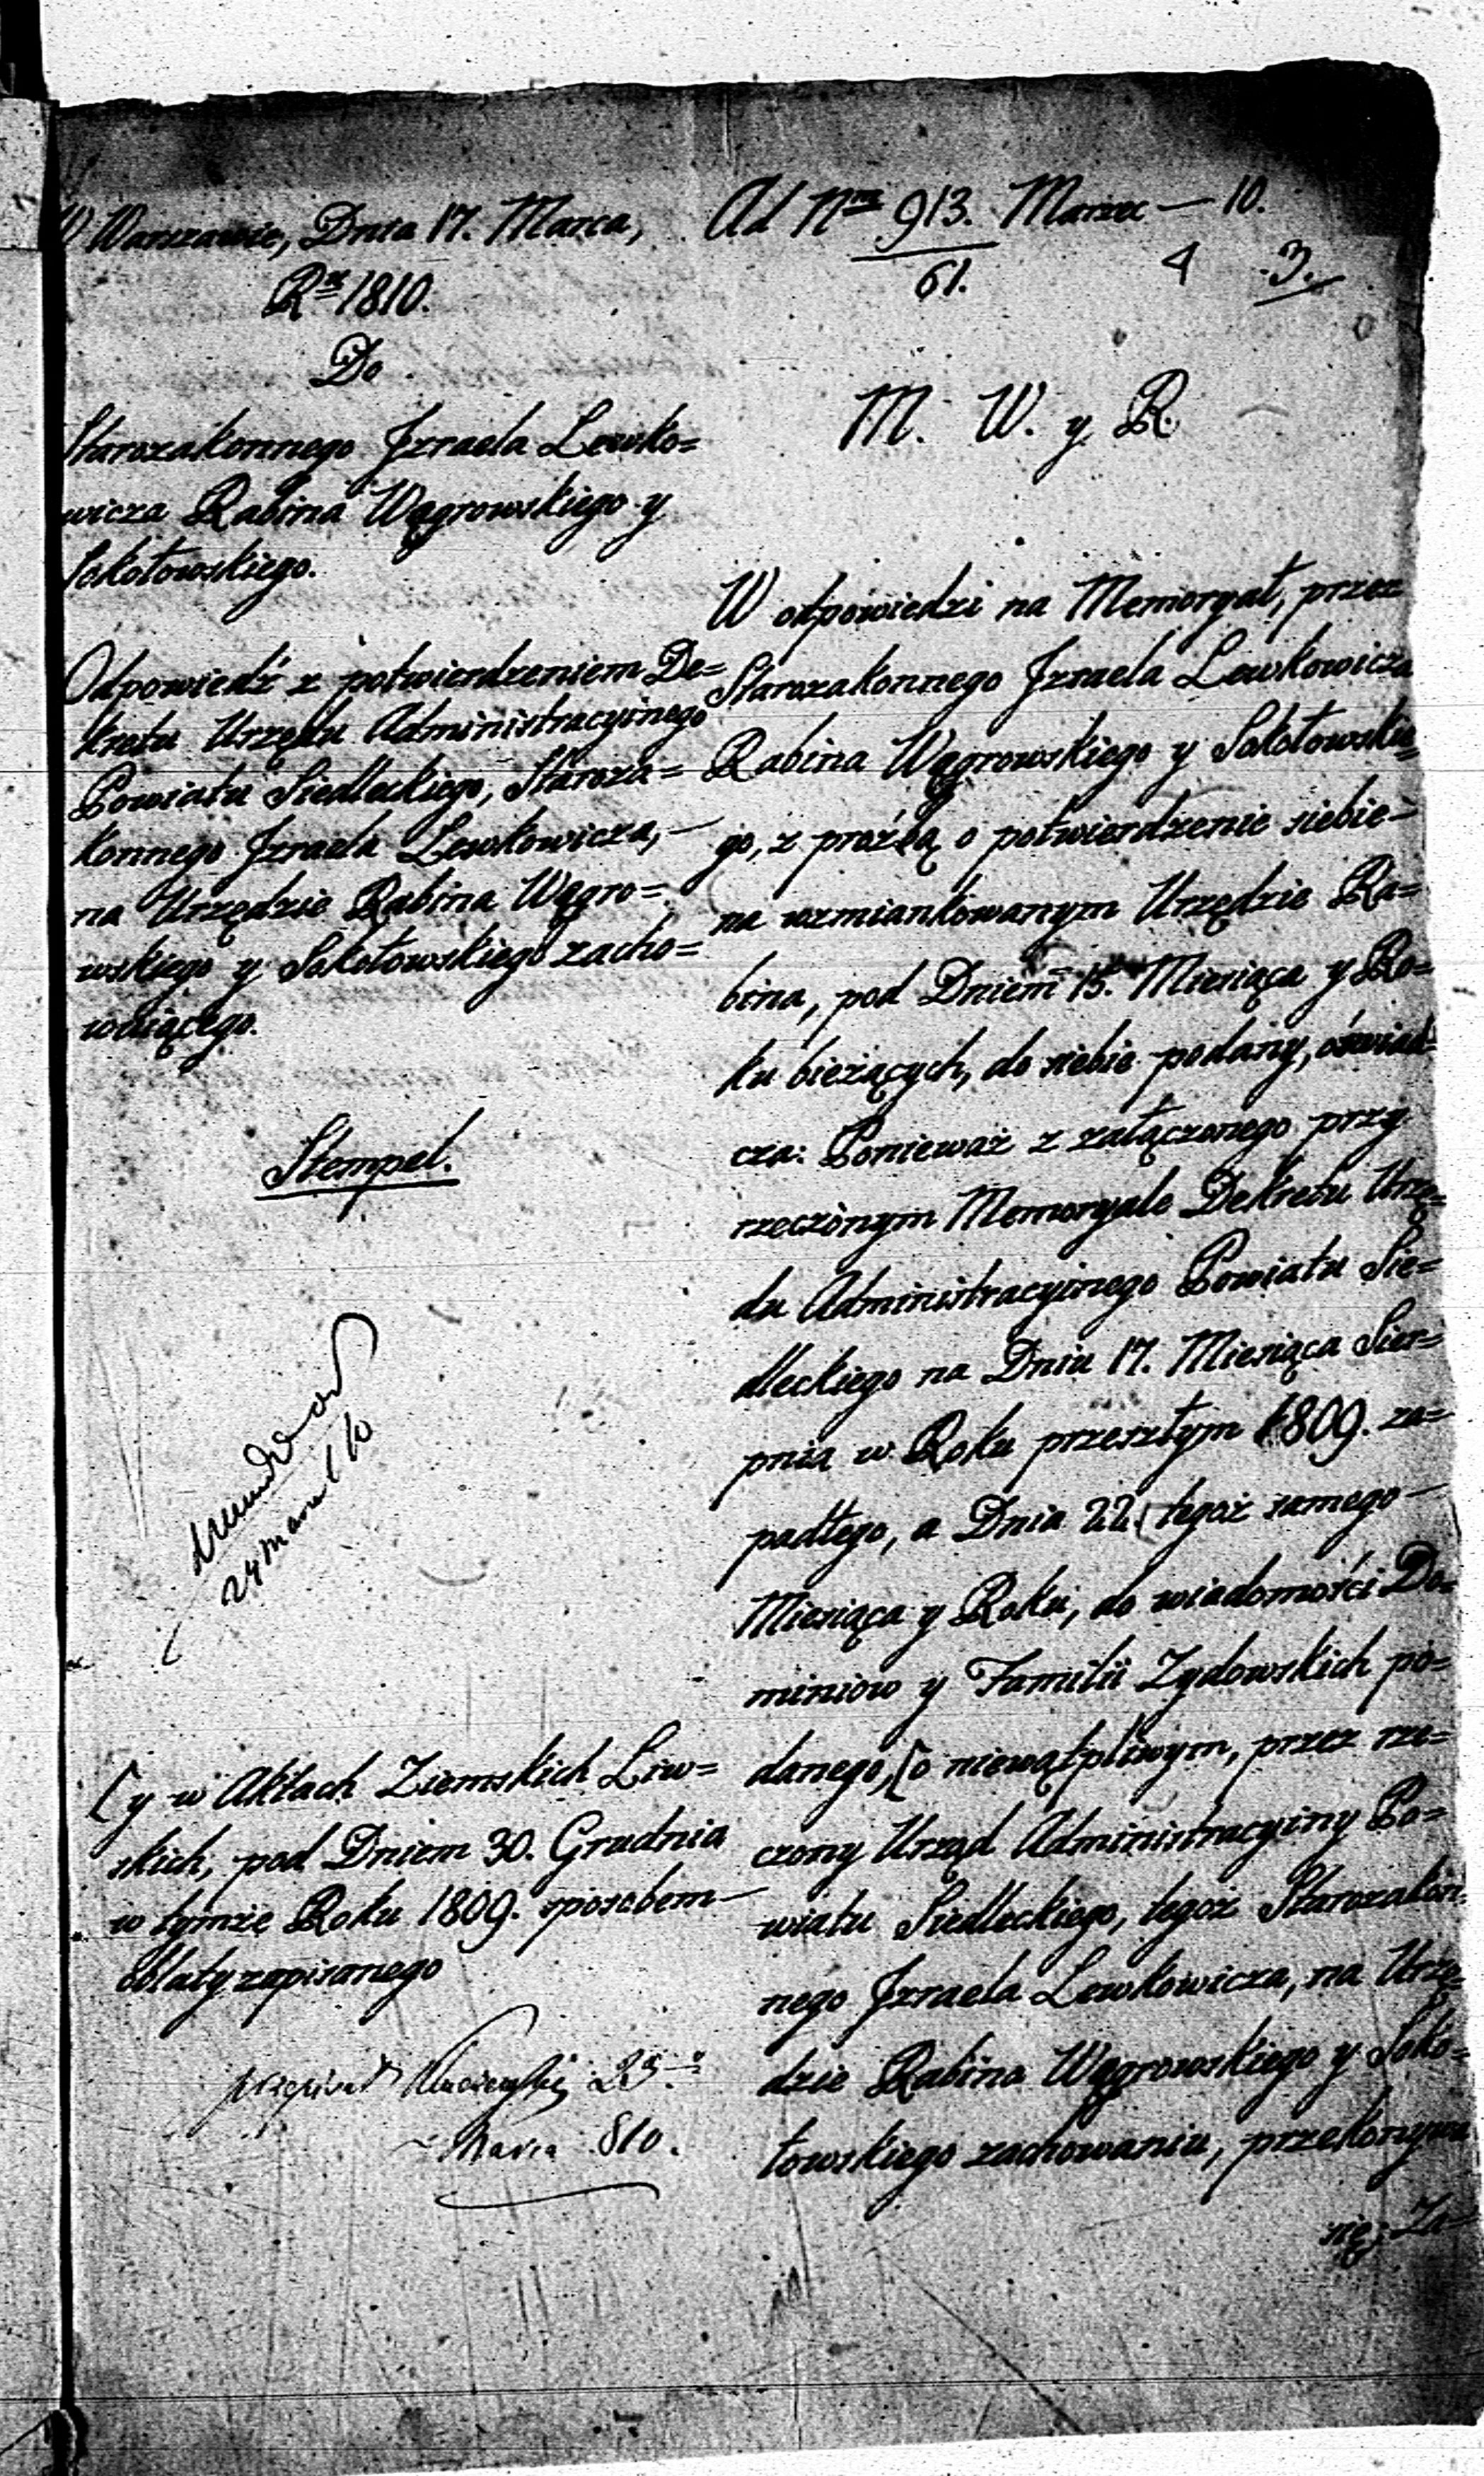 W Warszawie, Dnia 17. Marca,
Rꝝ 1810.
Do
Starozakonnego Jzraela Lewko=
wicza Rabina Wągrowskiego y
Sokołowskiego.
Odpowiedź z potwierdzeniem De=
kretu Urzędu Administracyinego
Powiatu Siedleckiego, Staroza=
konnego Jzraela Lewkowicza, —
na Urzędzie Rabina Wągro=
wskiego y Sokołowskiego zacho=
wuiącego.
Stempel.
24 Marca 1810
[y w Aktach Ziemskich Liw=
skich, pod Dniem 30. Grudnia
w tymże Roku 1809. sposobem —
oblaty zapisanego
23.
Marca 810.
Ad Nrm 913. Marzec — 10.
61.
4 3.
M. W. y R.
W odpowiedzi na Memoryał, przez
Starozakonnego Jzraela Lewkowicza
Rabina Wągrowskiego y Sokołowskie=
go, z prożbą o potwierdzenie siebie —
na wzmiankowanym Urzędzie Ra=
bina, pod Dniem 15. Miesiąca y Ro=
ku bieżących, do siebie podany, oświad=
cza: Ponieważ z załączonego przy
rzeczonym Memoryale Dekretu Urzę=
du Administracyinego Powiatu Sie=
dleckiego na Dniu 17. Miesiąca Sier=
pnia w Roku przeszłym 1809. za=
padłego, a Dnia 22. tegoż samego —
Miesiąca y Roku, do wiadomości Do=
miniow y Familii Zydowskich po=
danego, [o niewątpliwym, przez rze=
czony Urząd Administracyiny Po=
wiatu Siedleckiego, tegoż Starozakon=
nego Jzraela Lewkowicza, na Urzę=
dzie Rabina Wągrowskiego y Soko=
łowskiego zachowaniu, przekonywa
się; Za=